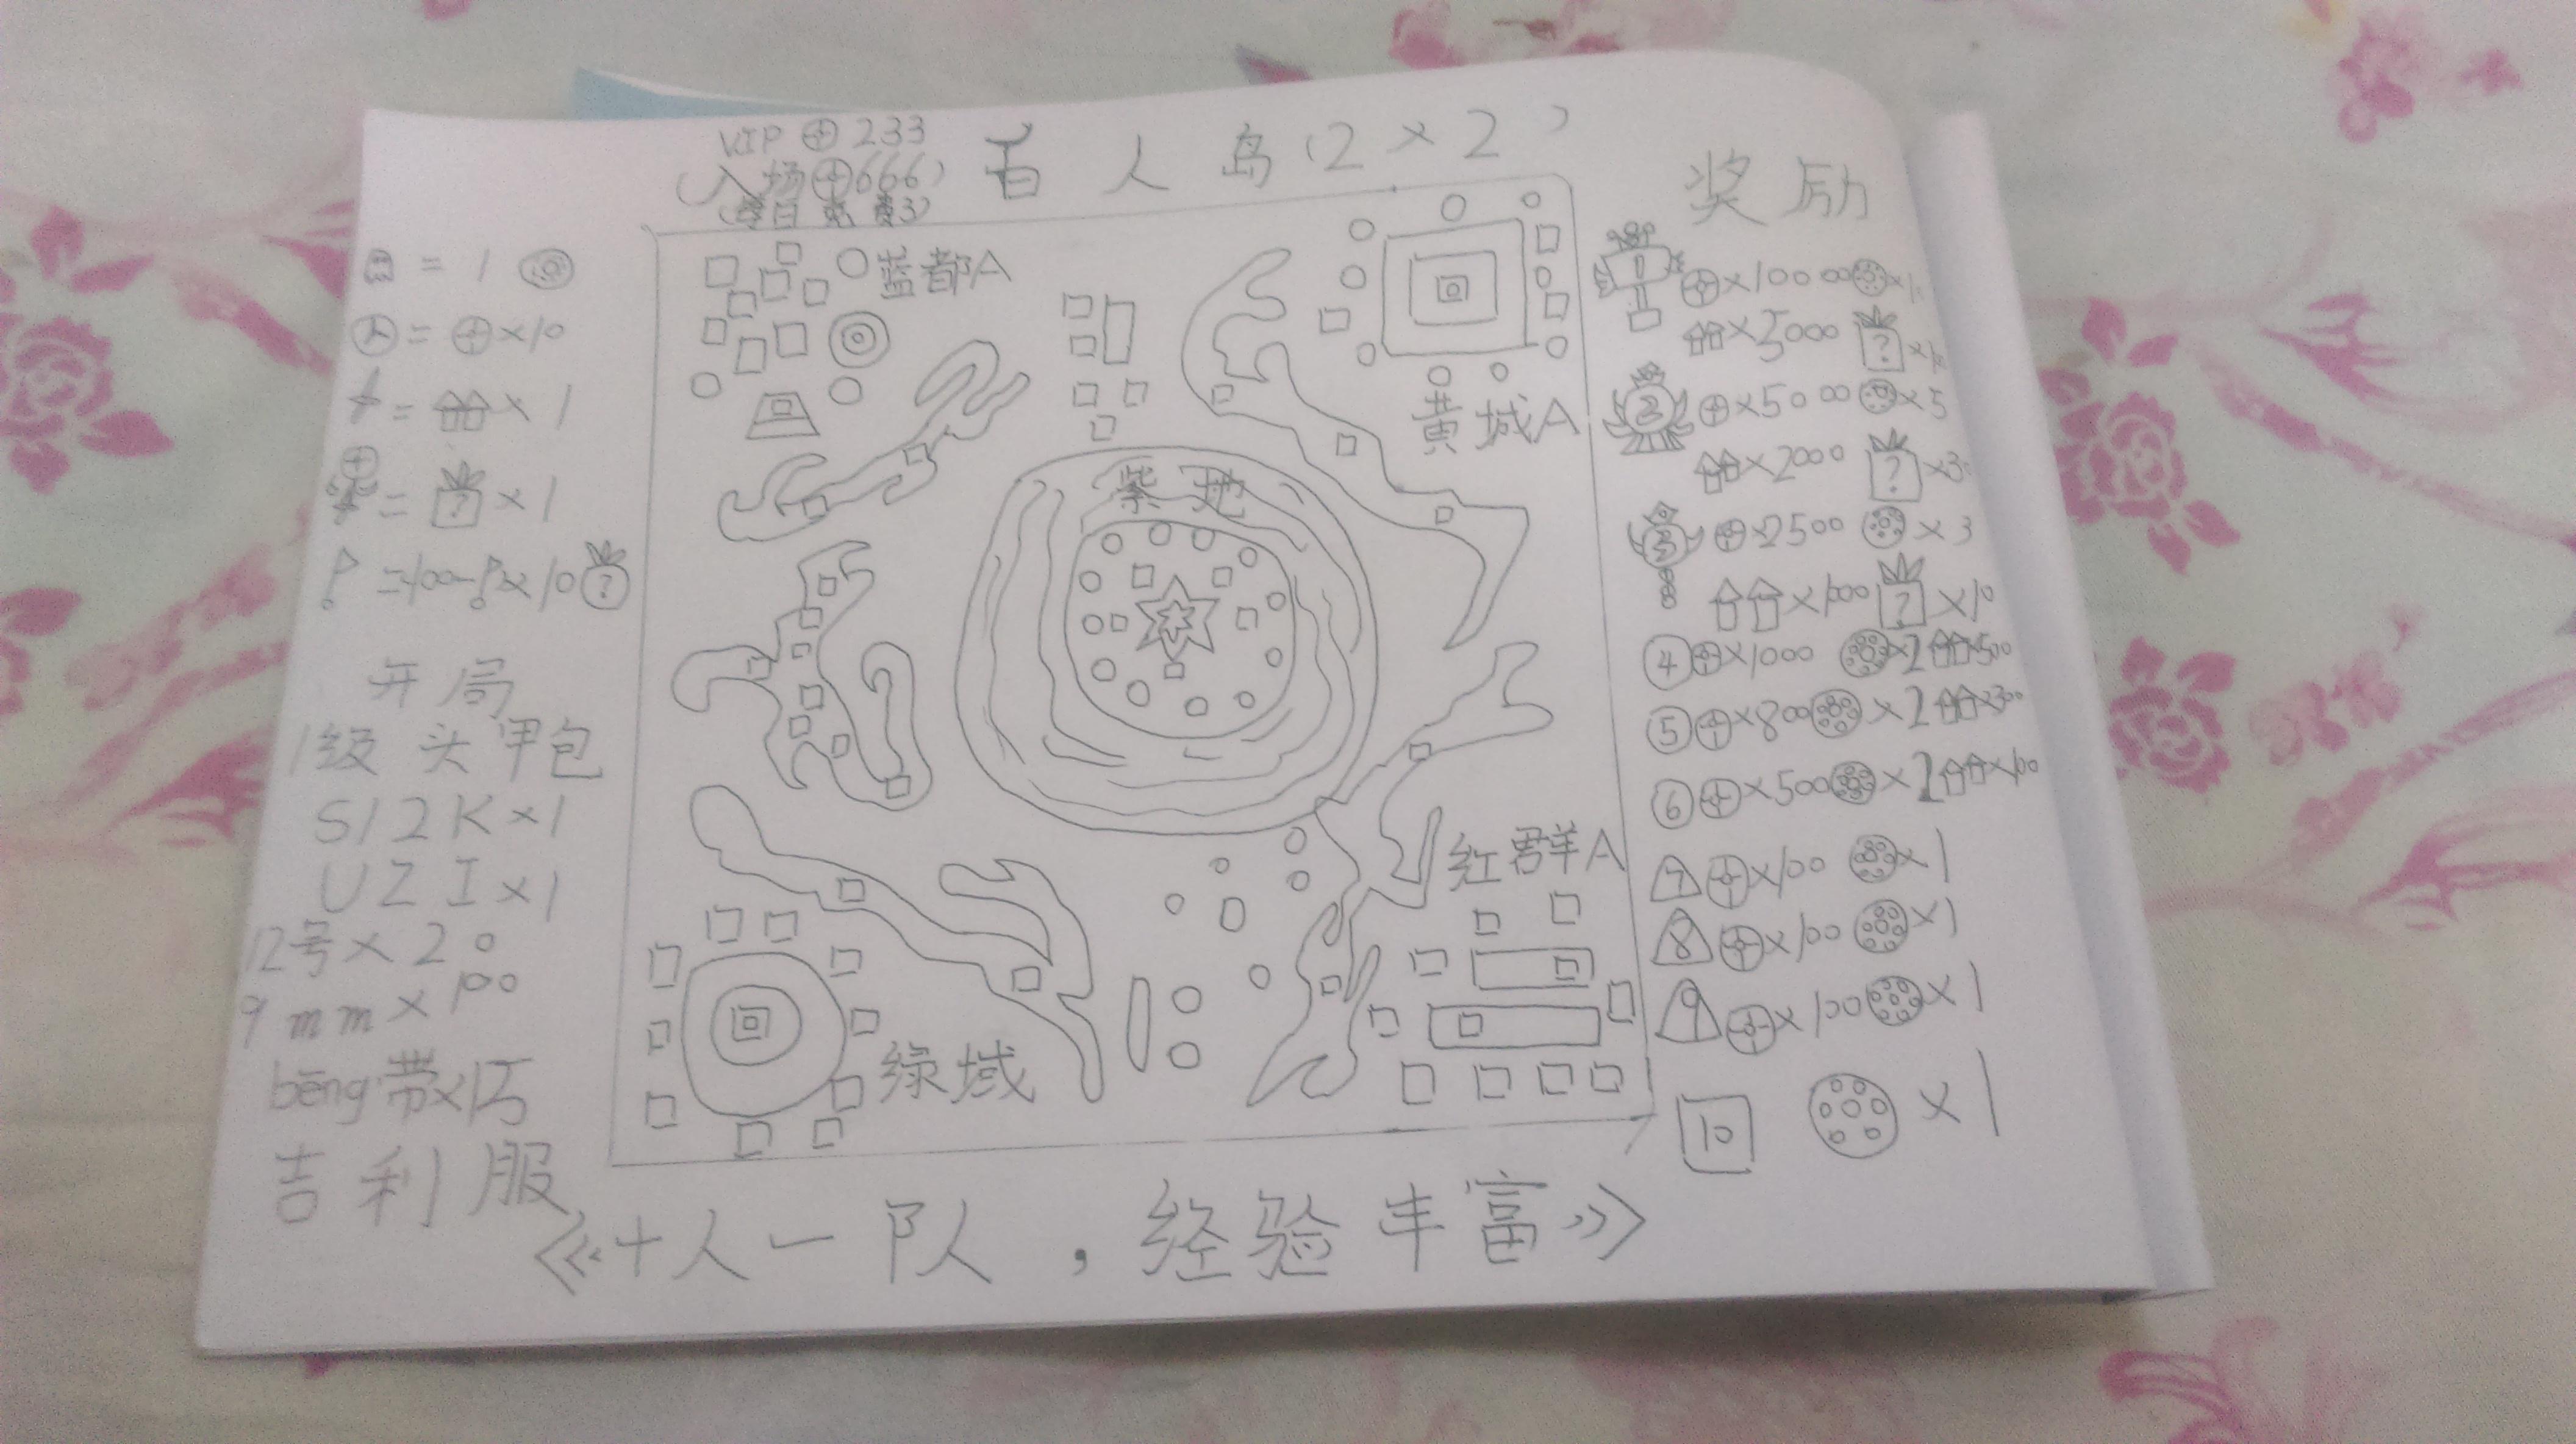 VIP 233
(入场 666)
(每日免费3)
百人岛(2×2)
奖励
= 1
= ×10
= ×1
= ? ×1
=100- ×10 ?
开局
1级 头甲包
S12K×1
UZI×1
12号×20
9mm×100
bēng带×15
吉利服
蓝都A
黄城A
紫地
红群A
绿域
1 ×10000
×5000 ?
2 ×5000 ×5
×2000 ?
3 ×2500 ×3
×1000 ? ×10
④ ×1000 ×2 ×500
⑤ ×800 ×2 ×300
⑥ ×500 ×2 ×100
7 ×100 ×1
8 ×100 ×1
9 ×100 ×1
10 ×1
《十人一队，经验丰富》